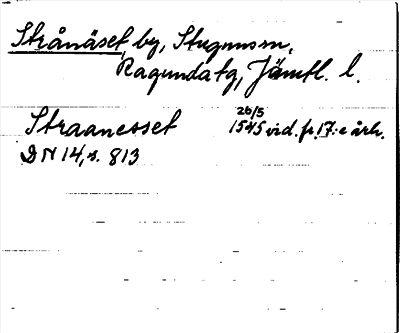 Strånäset, by, Stugun sn,
Ragunda tg, Jämtl. l.
Straanesset 26/5 1545 vid. fr. 17:e årh.
DN 14, s. 813